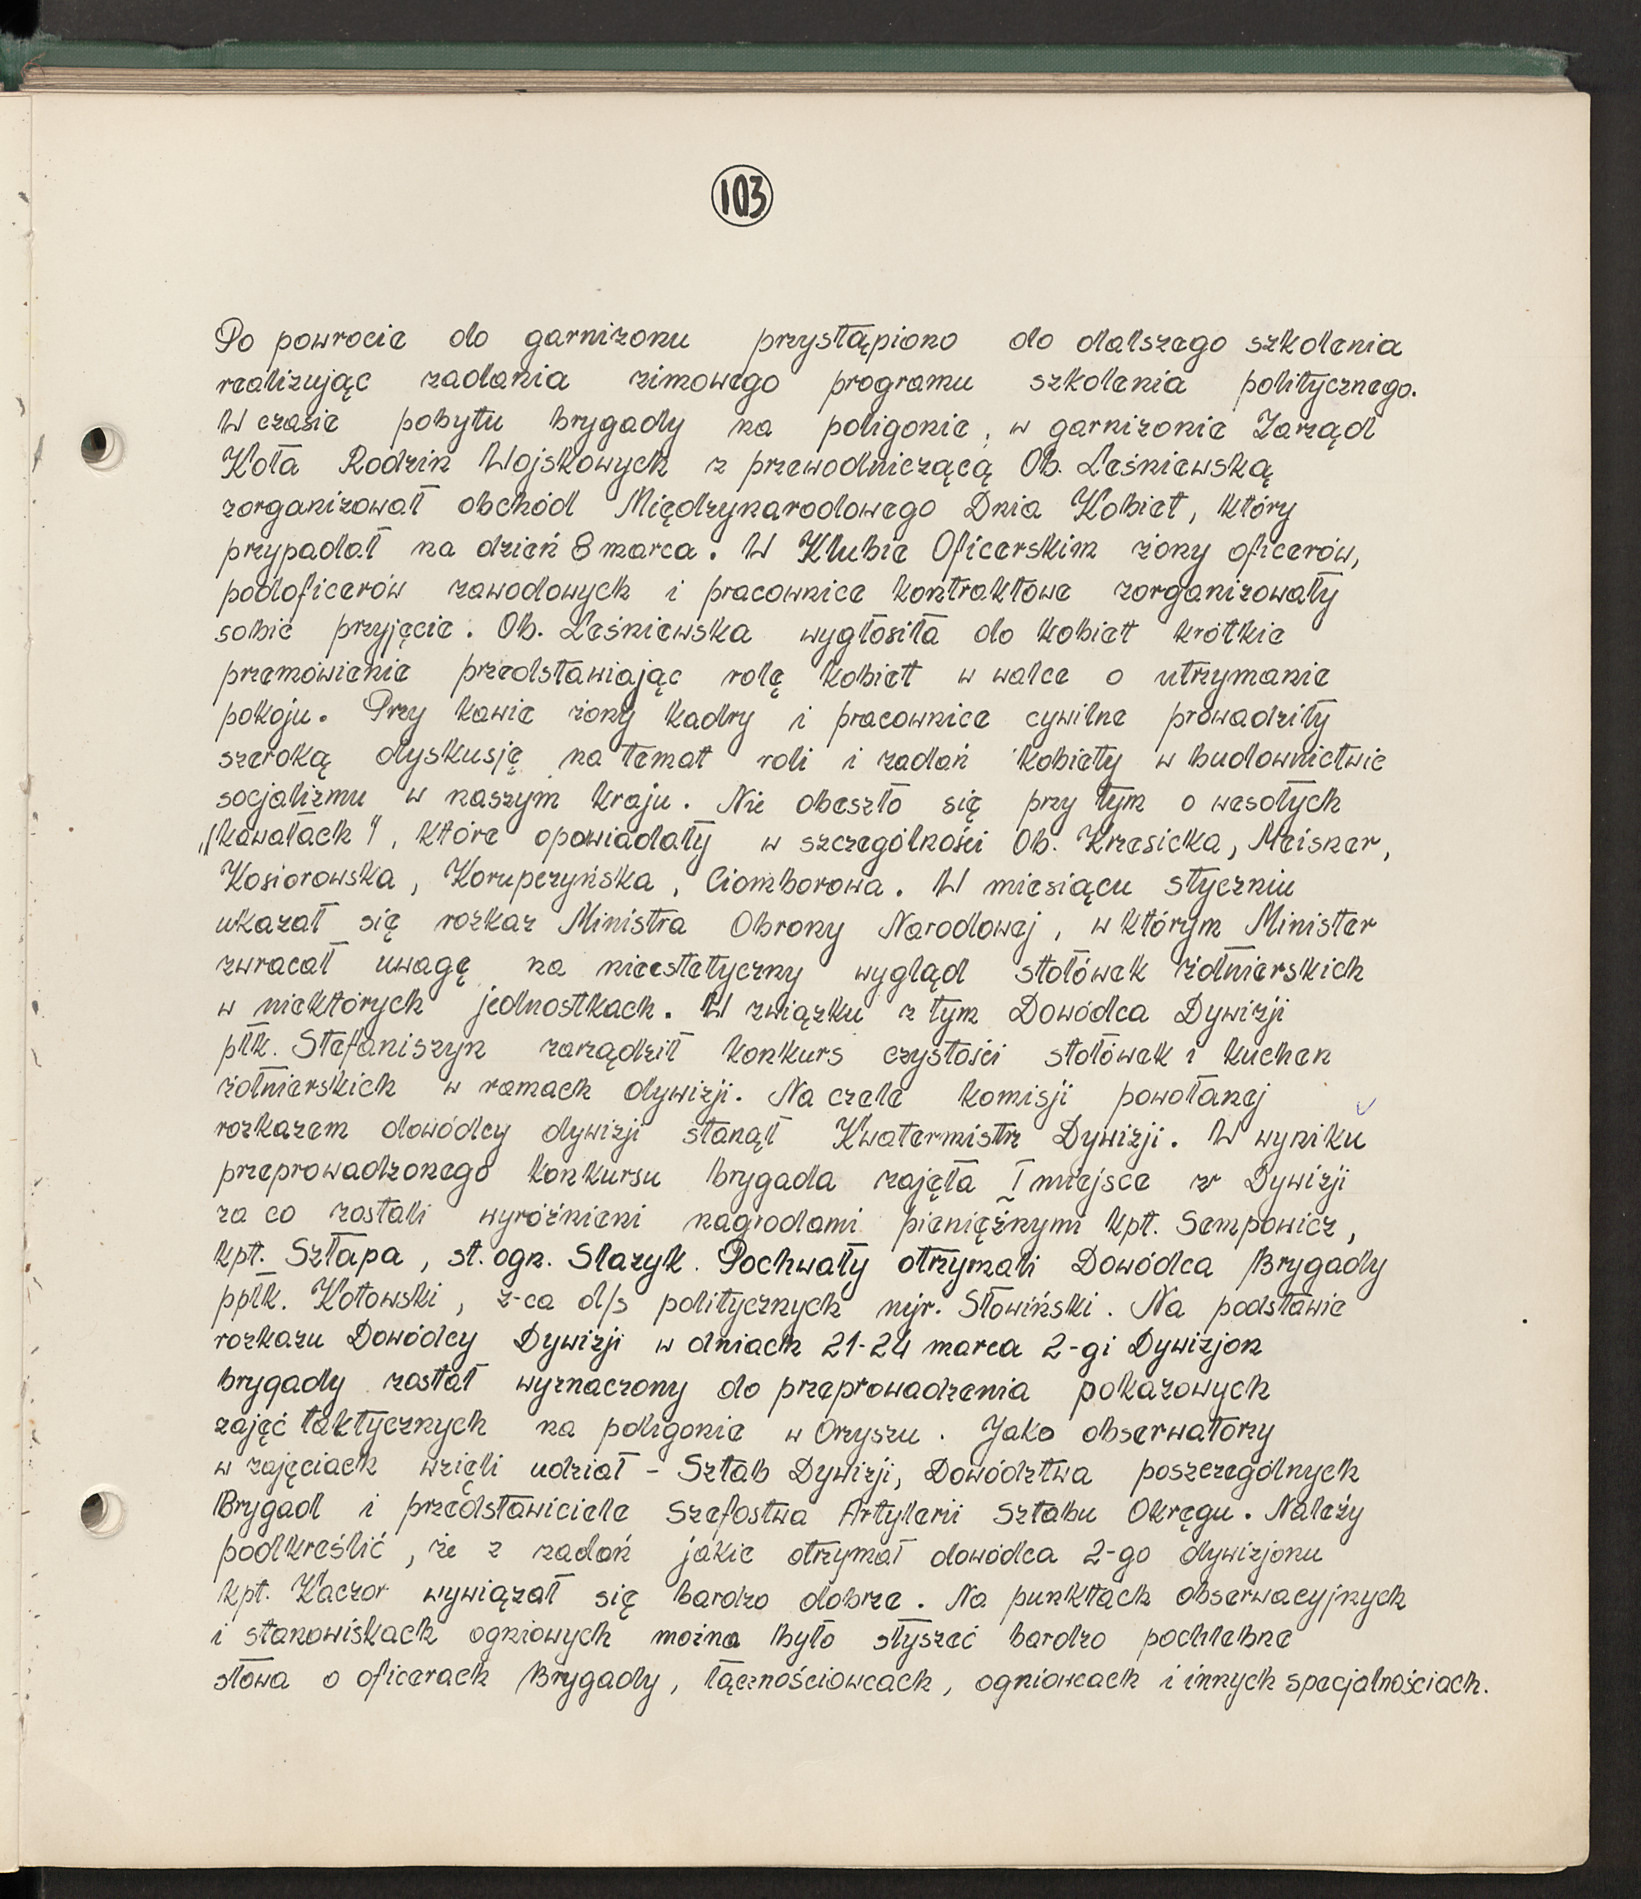 103
Po powrocie do garnizonu przystąpiono do dalszego szkolenia
realizując zadania zimowego programu szkolenia politycznego.
W czasie pobytu brygady na poligonie, w garnizonie Zarząd
Koła Rodzin Wojskowych z przewodniczącą Ob. Leśniewską
zorganizował obchód Międzynarodowego Dnia Kobiet, który
przypadał na dzień 8 marca. W Klubie Oficerskim żony oficerów,
podoficerów zawodowych i pracownice kontraktowe zorganizowały
sobie przyjęcie. Ob. Leśniewska wygłosiła do kobiet krótkie
przemówienie przedstawiając rolę kobiet w walce o utrzymanie
pokoju. Przy kawie żony kadry i pracownice cywilne prowadziły
szeroką dyskusję na temat roli i zadań kobiety w budownictwie
socjalizmu w naszym kraju. Nie obeszło się przy tym o wesołych
„kawałach", które opowiadały w szczególności Ob. Krzesicka, Meisner,
Kosiorowska, Korupczyńska, Ciomborowa. W miesiącu styczniu
ukazał się rozkaz Ministra Obrony Narodowej, w którym Minister
zwracał uwagę na nieestetyczny wygląd stołówek żołnierskich
w niektórych jednostkach. W związku z tym Dowódca Dywizji
płk. Stefaniszyn zarządził konkurs czystości stołówek i kuchen
żołnierskich w ramach dywizji. Na czele komisji powołanej
rozkazem dowódcy dywizji stanął Kwatermistrz Dywizji. W wyniku
przeprowadzonego konkursu brygada zajęła I miejsce w Dywizji
za co zostali wyróźnieni nagrodami pieniężnymi kpt. Sempowicz,
kpt. Sztapa, st. ogn. Slazyk. Pochwały otrzymali Dowódca Brygady
ppłk. Kotowski, z-ca d/s politycznych mjr. Słowiński. Na podstawie
rozkazu Dowódcy Dywizji w dniach 21-24 marca 2-gi Dywizjon
brygady został wyznaczony do przeprowadzenia pokazowych
zajęć taktycznych na poligonie w Orzyszu. Jako obserwatorzy
w zajęciach wzięli udział - Sztab Dywizji, Dowództwa poszczególnych
Brygad i przedstawiciele Szefostwa Artylerii Sztabu Okręgu. Należy
podkreślić, że z zadań jakie otrzymał dowódca 2-go dywizjonu
kpt. Kaczor wywiązał się bardzo dobrze. Na punktach obserwacyjnych
i stanowiskach ogniowych można było słyszeć bardzo pochlebne
słowa o oficerach Brygady, łącznościowcach, ogniowcach i innych specjalnościach.